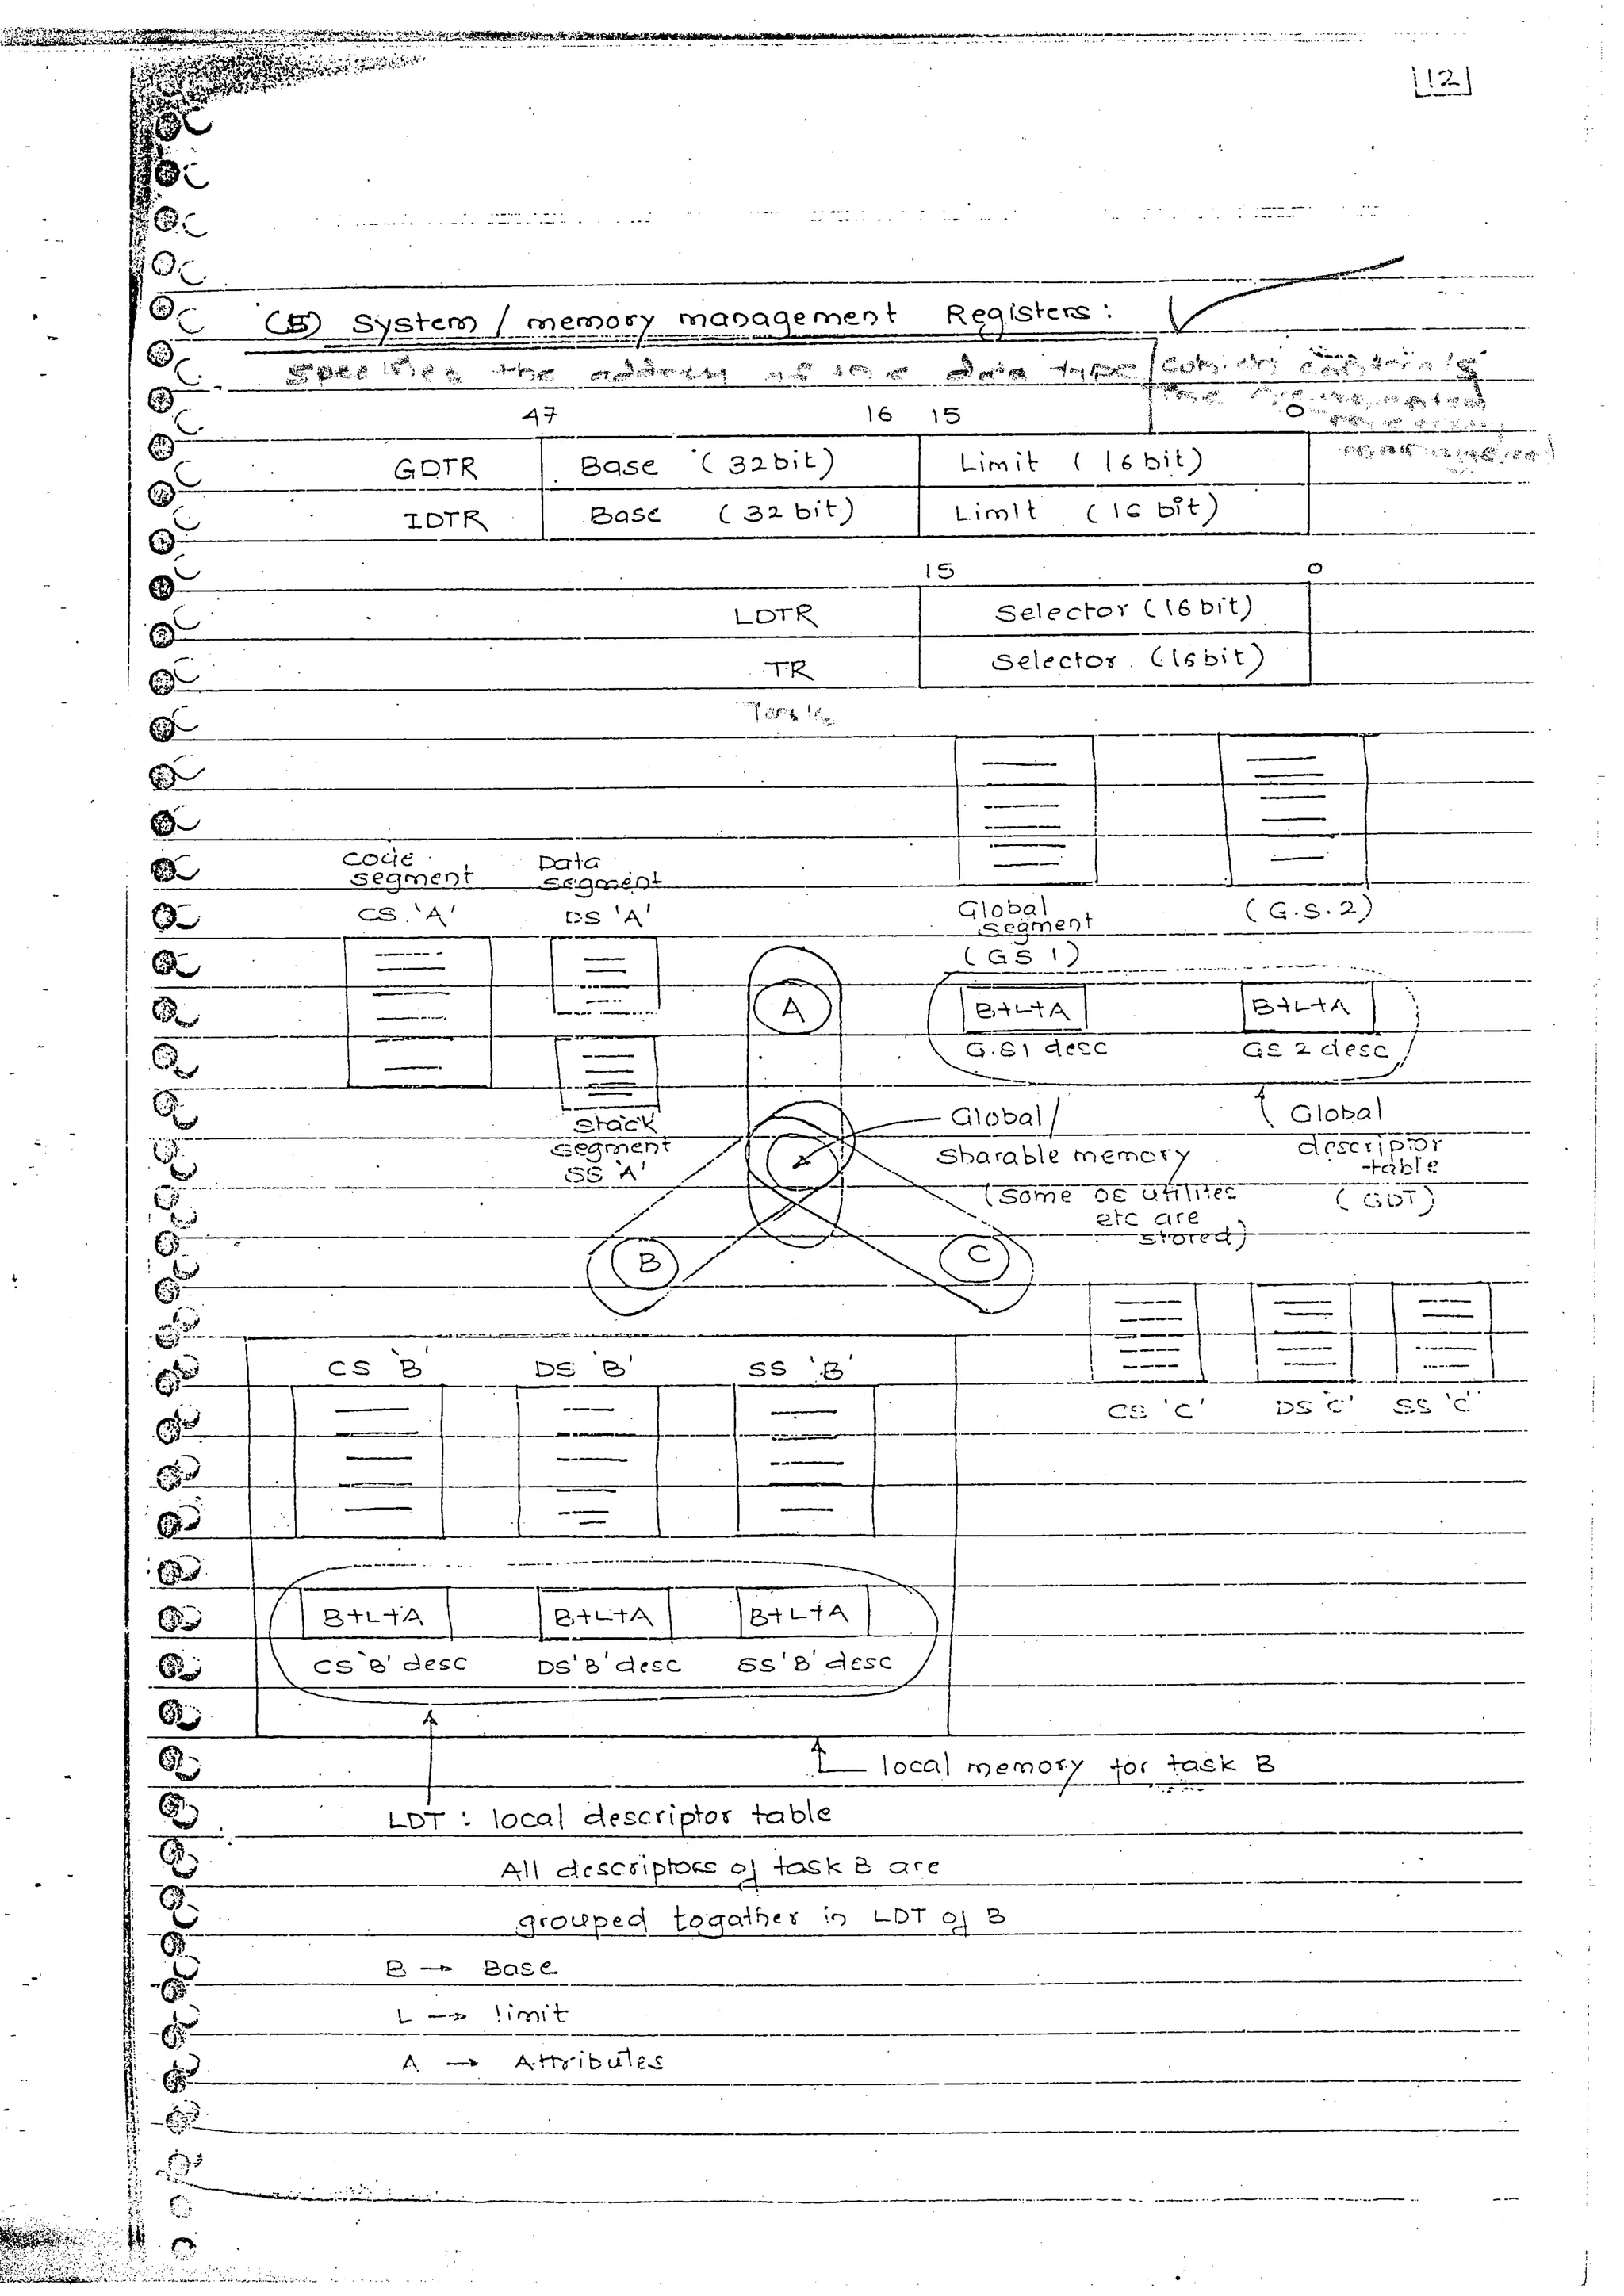 12
(5) System / memory management Registers :
Specifies the address of the data type which contains
the
47 16 15 0
GDTR Base (32bit) Limit (16bit)
IDTR Base (32bit) Limit (16 bit)
15 0
LDTR Selector (16 bit)
TR Selector (16 bit)
Task
Code segment CS 'A'
Data segment DS 'A'
Global segment (GS 1)
(G.S.2)
A
B+L+A B+L+A
G.S1 desc GS 2 desc
Stack segment SS 'A'
Global / Sharable memory
(some OS utilites etc are stored)
Global descriptor table (GDT)
B C
CS 'B' DS 'B' SS 'B'
CS 'C' DS 'C' SS 'C'
B+L+A B+L+A B+L+A
CS 'B' desc DS 'B' desc SS 'B' desc
local memory for task B
LDT : local descriptor table
All descriptors of task B are
grouped togather in LDT of B
B → Base
L → limit
A → Attributes